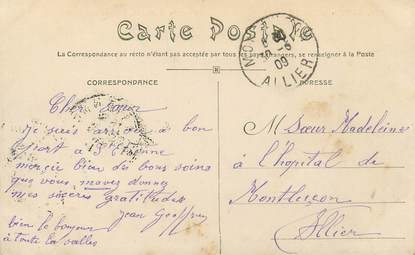 Carte Postale
La Correspondance au recto n'étant pas acceptée par tous les pays étrangers, se renseigner à la Poste
CORRESPONDANCE
ADRESSE
ALLIER
09
Cher soeur
Je suis arrivée a bon
port a St Etienne
mercie bien des bons soins
que vous mavez donné
mes sincères gratitudes
Jean Geoffroy
bien le bonjour
à toute la salles
M Sœur Madeleine
à l'hopital de
Montluçon
Allier